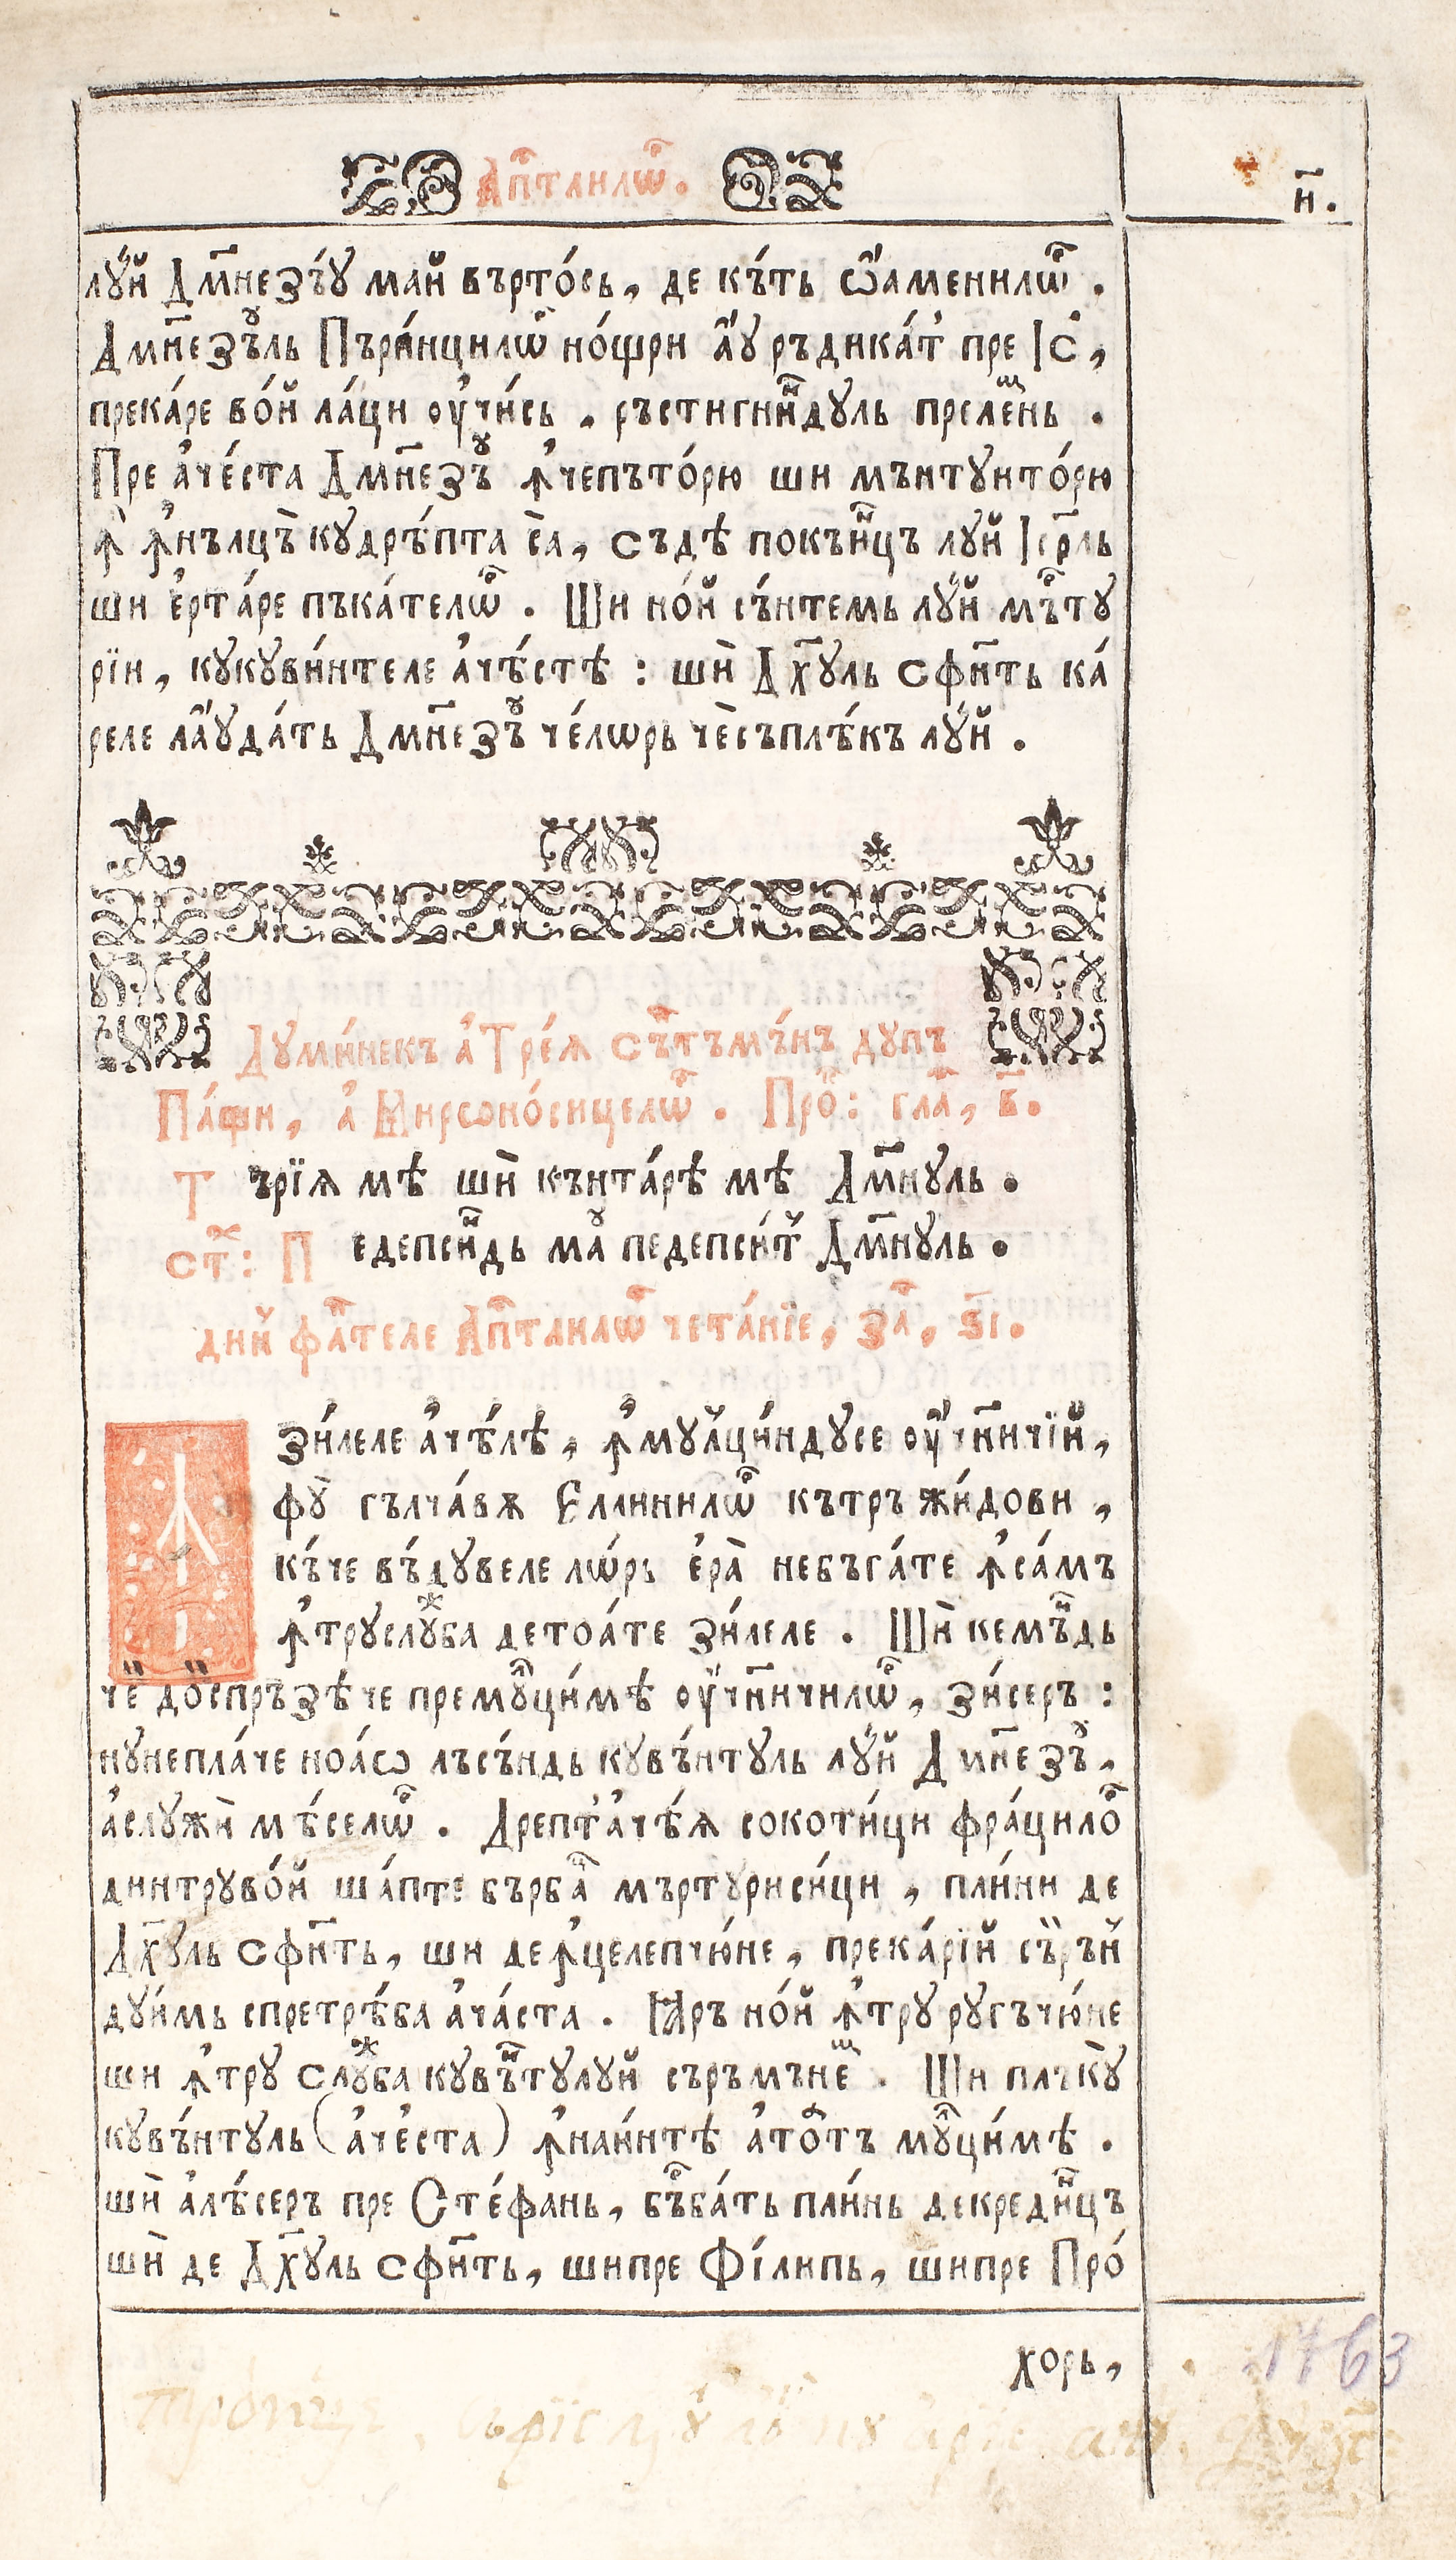 Ап҃тлнлѡ҇р.
н҃.
лу́й Дм҃незъ́у май въртѡ́сь, де къ́ть ѡ҆́аменилѡр .
Дм҃незъ́уль Пъри́нцилѡр но́щри а҆́у ръдика́т пре І҆с,
прека́ре во́й ла́ци ѹ҆чи́сь . ръстигни́ндуль прелемнь .
Пре а҆че́ста Дм҃незъу ꙟ҆чепъто́рю ши мънтуито́рю
ꙟ҆ ꙟ҆нълцъ̀ кудрѣ́пта са̀, съдѣ покъинцъ луй Іс҃рль
ши е҆рта́ре пъка́телѡр . Ши но́й съ́нтемь лу́й мъртꙋ
рїи, кукуви́нтеле а҆чѣ́стѣ : шѝ Дх҃уль сфн҃ть ка́
реле ла҆́уда́ть Дмн҃езъу че́лѡрь чѐсъплѣ́къ лу́й .
Думи́некъ а҆ Тре́ѧ съптъмъ́нъ дупъ
Па́щи, а҆ Мирѡно́сицелѡр . Про: гла, в҃.
Тъ́рїѧ мѣ шѝ кънта́рѣ мѣ Дм҃нуль .
ст҃: Педепсиндь ма педепси́т Дм҃нуль .
дий фаптеле Ап҃тлнлѡр чета́нїе, за, ѕ҃і.
ꙟ зи́леле а҆чѣ́лѣ, ꙟ҆мулци́ндусе ѹ҆чн҃ичїй,
фу̀ гълча́вѫ Еллинилѡр кътръ жи́дови ,
къ́че въ́дувеле лѡ́рь е҆ра̀ небъга́те ꙟ҆са́мъ
ꙟ҆труслужба детоа́те зи́леле . Шѝ кемъндь
че̏ до̏спръзѣче премулци́мѣ ѹ҆чн҃ичилѡр, зи́серъ :
нунепла́че ноа́ѡ лъсъ́ндь кувъ́нтуль лу́й Дмн҃езъу,
а҆служѝ мѣ́селѡр . Дрепта҆чѣ́ѧ сокоти́ци фра́цилор
динтруво́й ша́пте бърба мъртуриси́ци , пли́ни де
Дх҃уль сфн҃ть, ши деꙟ҆целепчю́не, прека́рїй съръй
дуи́мь спретрѣ́ба а҆ча́ста . Ꙗръ но́й ꙟ҆тру ругъчю́не
ши ꙟ҆тру служба кувънтулуй съръмънем . Ши плъку̀
кувъ́нтуль ( а҆че́ста ) ꙟ҆наи́нтѣ а҆тотъ мулци́мѣ .
шѝ а҆лѣ́серъ пре Сте́фань, бърба́ть пли́нь декреди́нцъ
шѝ де Дх҃уль сфн҃ть, шипре Фі́липь, шипре Про́
хорь,
1763